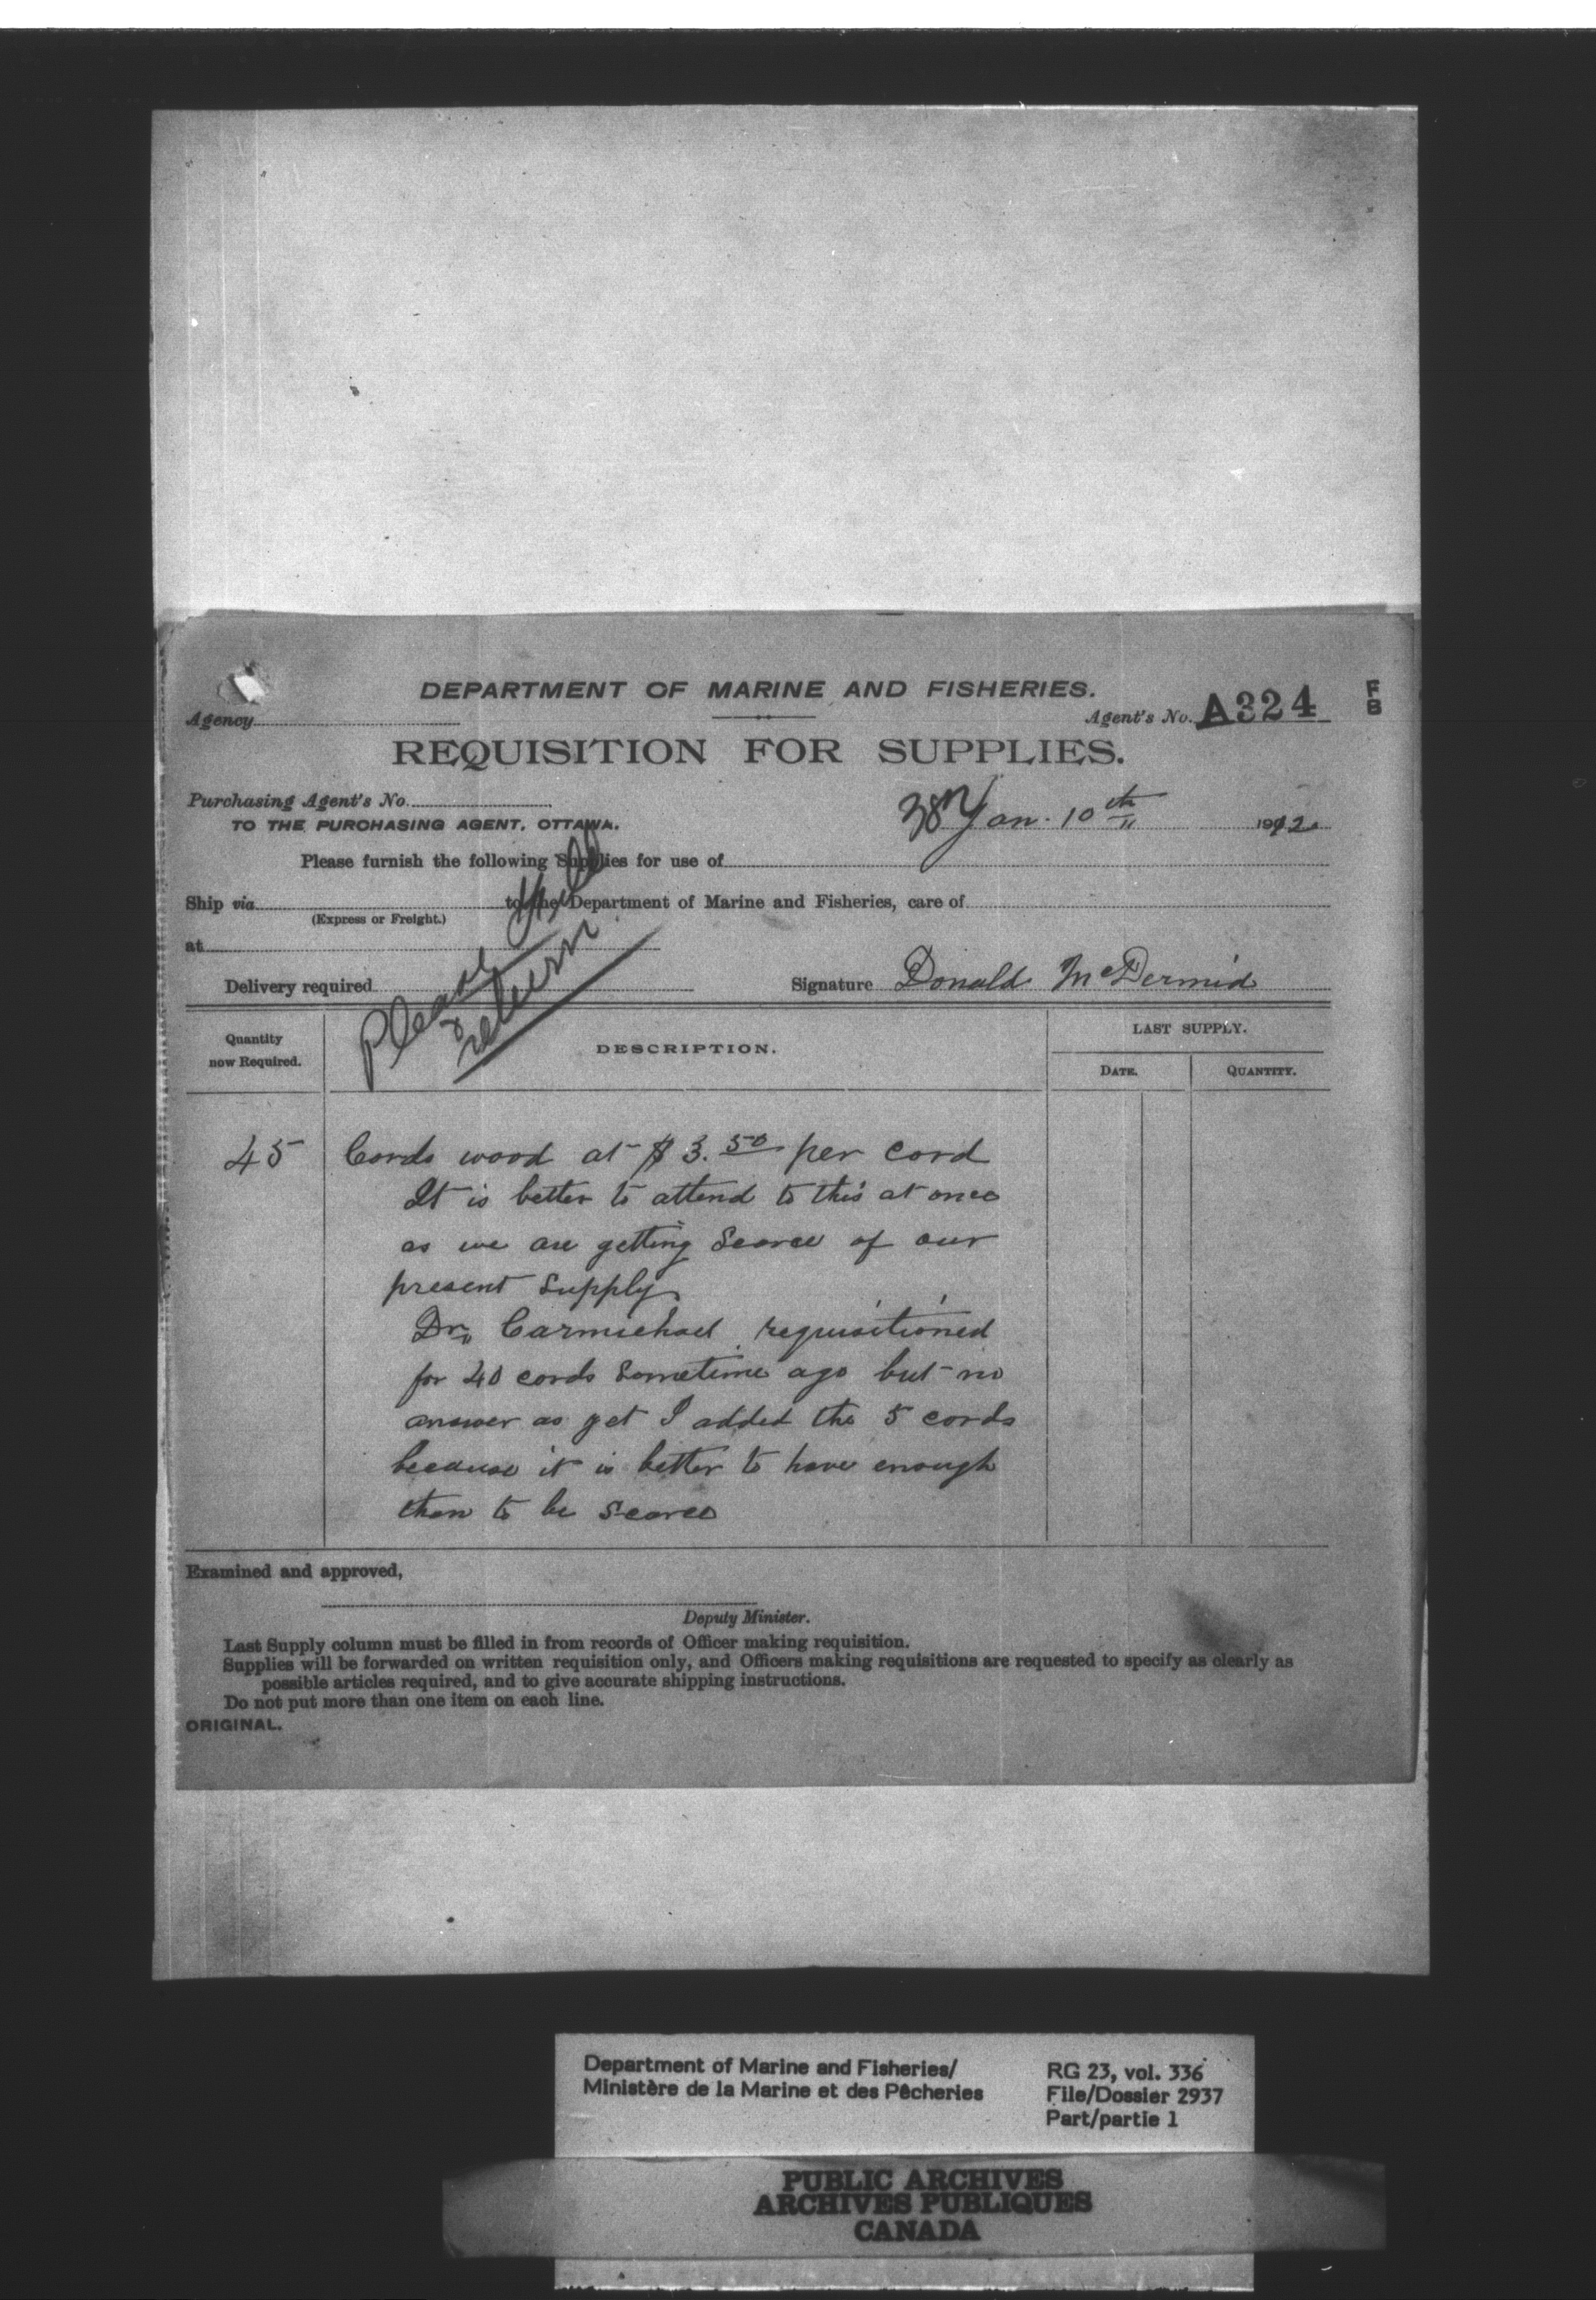 DEPARTMENT OF MARINE AND FISHERIES.
F
B
Agency
Agent's No. A324
REQUISITION FOR SUPPLIES.
Purchasing Agent's No.
Jan. 10th 1912
TO THE PURCHASING AGENT, OTTAWA.
Please furnish the following Supplies for use of
Ship via to the Department of Marine and Fisheries, care of
(Express or Freight.)
at
Please
& return
Delivery required Signature Donald McDermid
Quantity now Required. DESCRIPTION. LAST SUPPLY.
DATE. QUANTITY.
45 Cords wood at $3.50 per cord
It is better to attend to this at once
as we are getting Scarce of our
present Supply
Dr. Carmichael requisitioned
for 40 cords Sometime ago but no
answer as yet I added the 5 cords
because it is better to have enough
than to be Scarce
Examined and approved,
Deputy Minister.
Last Supply column must be filled in from records of Officer making requisition.
Supplies will be forwarded on written requisition only, and Officers making requisitions are requested to specify as clearly as
possible articles required, and to give accurate shipping instructions.
Do not put more than one item on each line.
ORIGINAL.
Department of Marine and Fisheries/
Ministère de la Marine et des Pêcheries
RG 23, vol. 336
File/Dossier 2937
Part/partie 1
PUBLIC ARCHIVES
ARCHIVES PUBLIQUES
CANADA